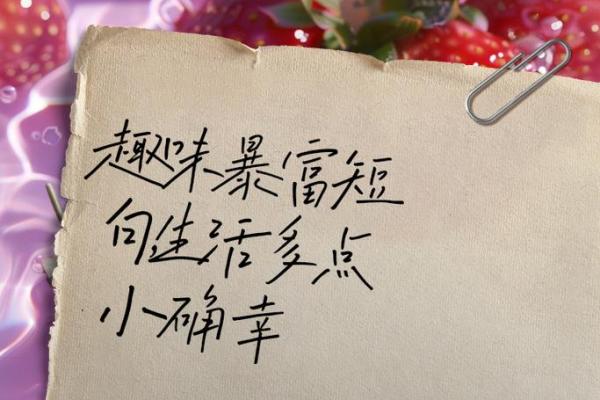 趣味暴富短
句生活多点
小确幸